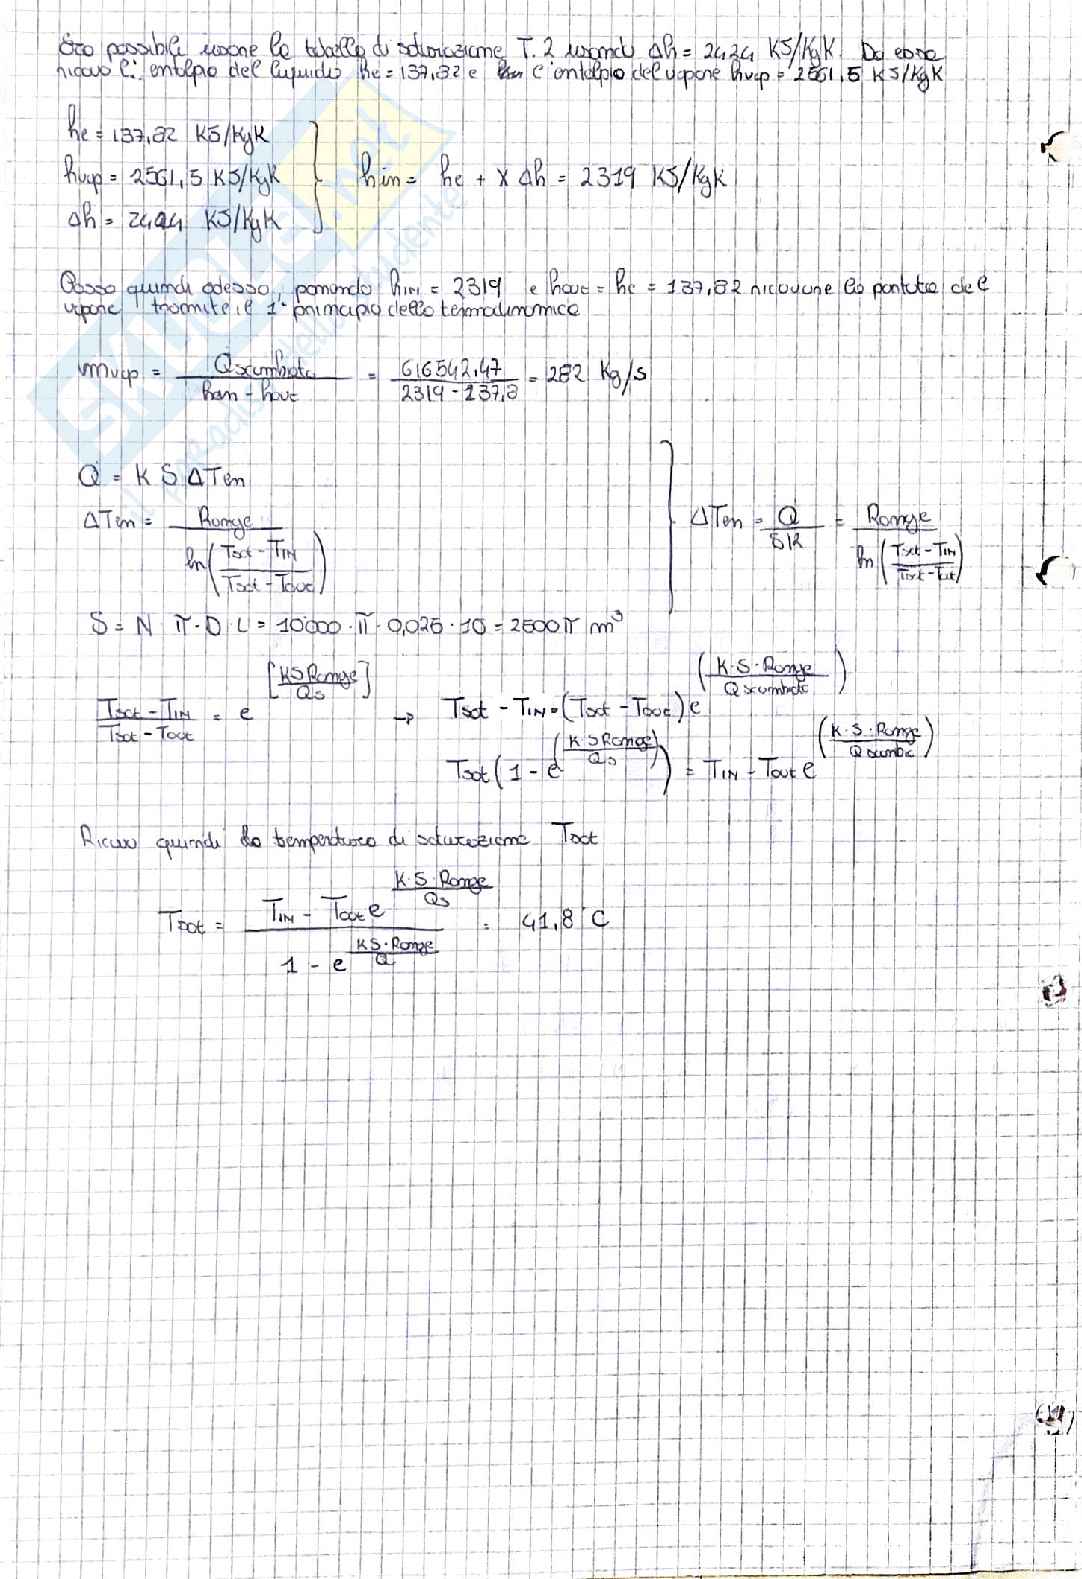 Ora possibile usare le tabelle di saturazione T. 2 usando Δh = 2424 KJ/KgK. Da esse
ricavo l'entalpia del liquido he = 137,82 e l'entalpia del vapore hvap = 2561,5 KJ/KgK
he = 137,82 KJ/KgK
hvap = 2561,5 KJ/KgK
Δh = 2424 KJ/KgK
hin = he + x Δh = 2319 KJ/KgK
Posso quindi adesso, ponendo hin = 2319 e hout = he = 137,82 ricavare la portata del
vapore tramite il 1° principio della termodinamica
mvap = Qscambiato / (han - hout) = 616542,47 / (2319 - 137,8) = 282 Kg/s
Q = K S ΔTen
ΔTen = Range / ln((Tsat - TIN) / (Tsat - Tout))
ΔTen = Q / SK = Range / ln((Tsat - TIN) / (Tsat - Tout))
S = N π · D L = 10000 · π · 0,025 · 10 = 2500 π m³
(Tsat - TIN) / (Tsat - Tout) = e^[KS Range / Qs] → Tsat - TIN = (Tsat - Tout) e^(K·S·Range / Qscambiato)
Tsat (1 - e^(K·S Range / Qs)) = TIN - Tout e^(K·S·Range / Qscambia)
Ricavo quindi la temperatura di saturazione Tsat
Tsat = (TIN - Tout e^(K·S·Range / Qs)) / (1 - e^(KS·Range / Q)) = 41,8 °C